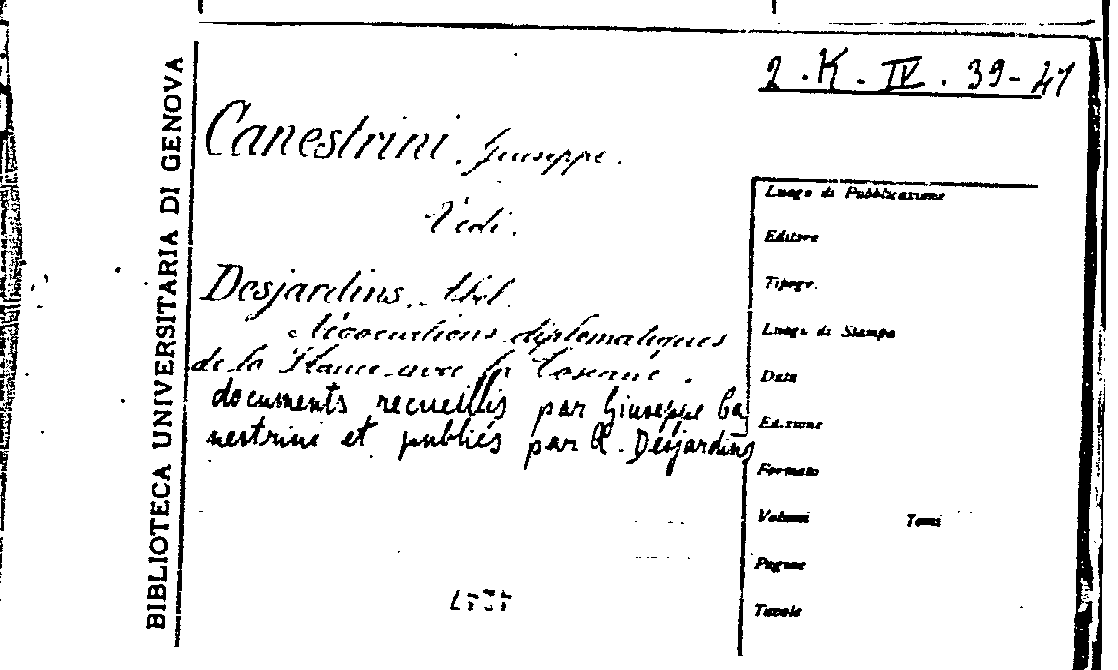 BIBLIOTECA UNIVERSITARIA DI GENOVA
2. K. IV. 39-41
Canestrini. Giuseppe.
Vedi.
Desjardins. Abel.
Négociations diplomatiques
de la France avec la Toscane.
documents recueillis par Giuseppe Ca
nestrini et publiés par A. Desjardins
Luogo di Pubblicazione
Editore
Tipogr.
Luogo di Stampa
Data
Edizione
Formato
Volumi Tomi
Pagine
Tavole